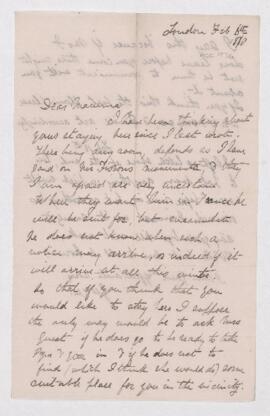 London Feb 6th
Dear Mamma
I have been thinking about
your staying here since I last wrote.
There being any room depends as I have
said on Mr Tisons movements & they
I am afraid are very uncertain
When they want him in
will be sent for, but
he does not know when such a
notice may arrive, or indeed if it
will arrive at all this
So that if you think that you
would like to stay here I suppose
the only way would be to ask Mrs
Guest if he does go to be ready to take
you in & if he does not to
find (which I think she would do) some
suitable place for you in the vicinity.